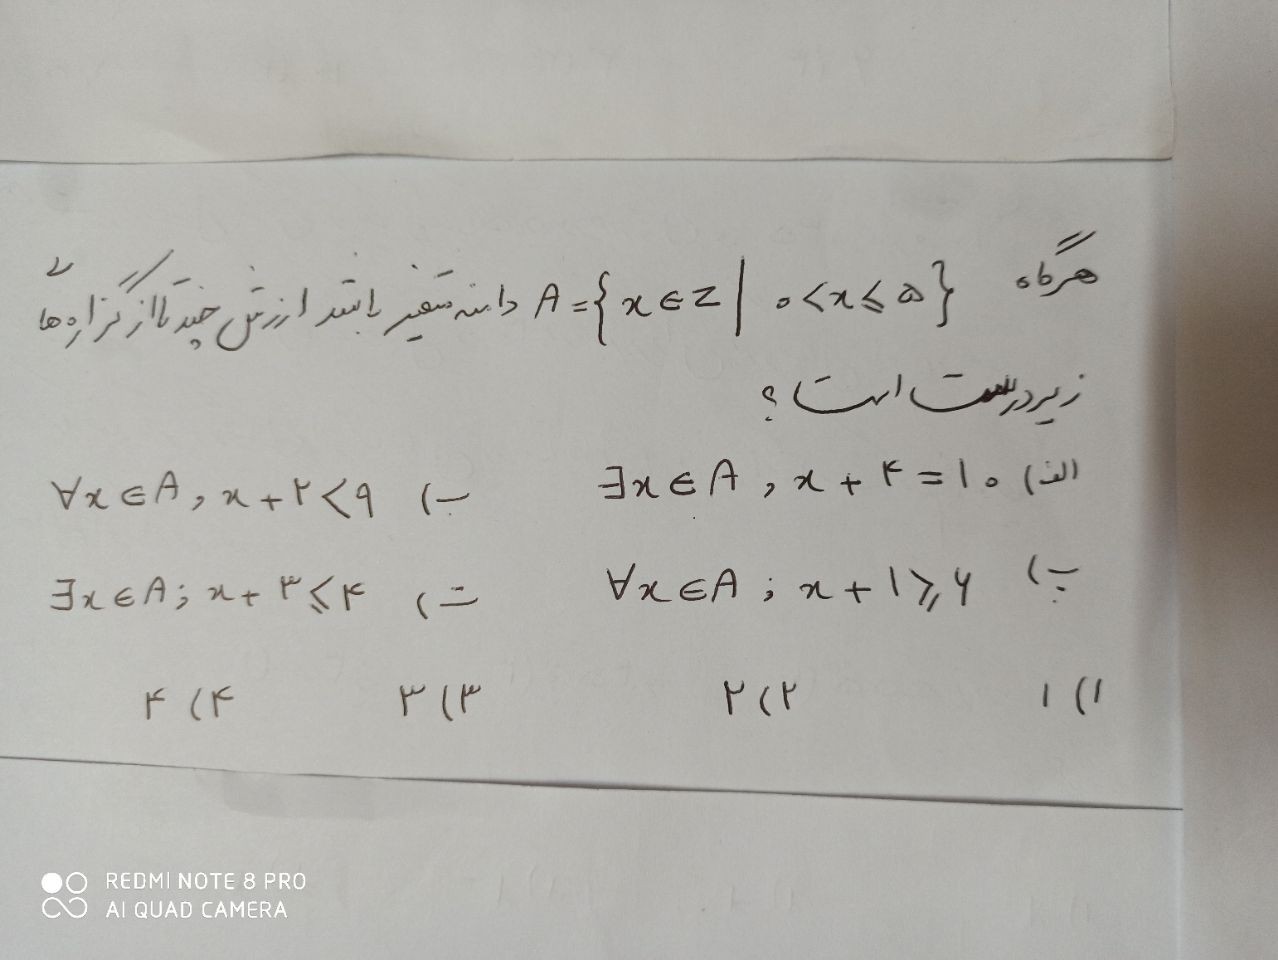 هرگاه A = {x ∈ Z | ۰ < x ≤ ۵} دامنه متغیر باشد ارزش چند تا از گزاره‌های
زیر درست است ؟
الف) ∃x ∈ A , x + ۴ = ۱۰ ب) ∀x ∈ A , x + ۲ < ۹
پ) ∀x ∈ A ; x + ۱ ≥ ۶ ت) ∃x ∈ A ; x + ۳ ≤ ۴
۱) ۱ ۲) ۲ ۳) ۳ ۴) ۴
REDMI NOTE 8 PRO
AI QUAD CAMERA